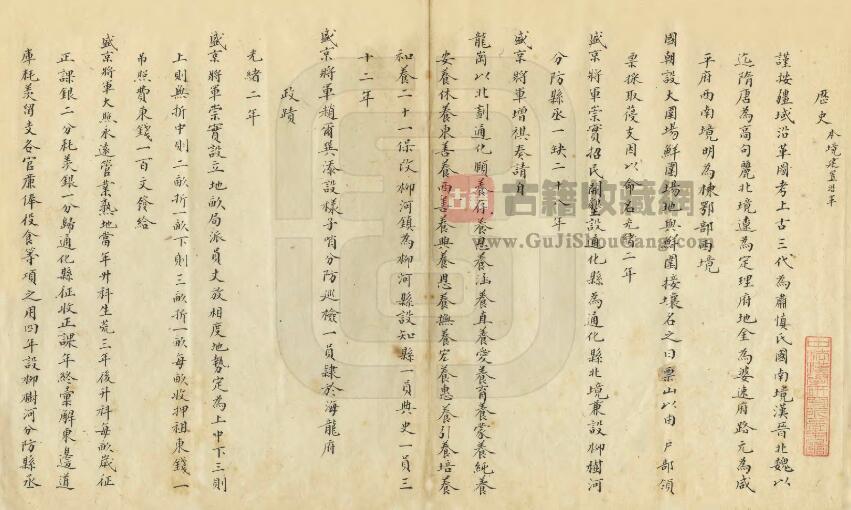 歷史 本境建置沿革
謹按疆域沿革國考上古三代為肅慎氏國南境漢晉北魏以
迄隋唐為高句麗北境遼為定理府地金為婆速府路元為咸
平府西南境明為棟鄂部南境
國朝設大圍場鮮圍場地與鮮圍接壤名之曰票山以由戶部領
票採取葠支因以命名光緒二年
盛京將軍崇實招民開墾設通化縣為通化縣北境兼設柳樹河
分防縣丞一缺二十八年
盛京將軍增祺奏請自
龍崗以北劃通化願養存養思養涵養直養愛養育養蒙養純養
安養休養東善養西善養興養恩養撫養宏養惠養引養培養
和養二十一保改柳河鎮為柳河縣設知縣一員典史一員三
十二年
盛京將軍趙爾巽添設樣子哨分防巡檢一員隸於海龍府
政蹟
光緒二年
盛京將軍崇實設立地畝局派員丈放相度地勢定為上中下三則
上則無折中則二畝折一畝下則三畝折一畝每畝收押租東錢一
吊照費東錢一百文發給
盛京將軍大照永遠管業熟地當年升科生荒三年後升科每畝歲征
正課銀二分耗羨銀一分歸通化縣征收正課年終彙解東邊道
庫耗羨留支各官廉俸役食等項之用四年設柳樹河分防縣丞
古籍
古籍收藏網
www.GuJiShouCang.com